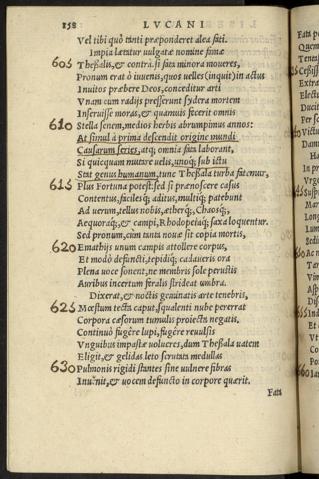 158 LVCANI
Vel tibi quo tanti præponderet alea fati.
Impia lætatur uulgatæ nomine famæ
605 Thessalis, & contrà. si fata minora moueres,
Pronum erat ô iuuenis, quos uelles (inquit) in actus
Inuitos præbere Deos, conceditur arti
Vnam cum radijs presserunt sydera mortem
Inseruisse moras, & quamuis fecerit omnis
610 Stella senem, medios herbis abrumpimus annos:
At simul à prima descendit origine mundi
Causarum series, atq; omnia fata laborant,
Si quicquam mutare uelis, unoq; sub ictu
Stat genus humanum, tunc Thessala turba fatemur,
615 Plus Fortuna potest: sed si prænoscere casus
Contentus, facilesq; aditus, multiq; patebunt
Ad uerum, tellus nobis, ætherq;, Chaosq;,
Aequoraq;, & campi, Rhodopeiaq; saxa loquentur.
Sed pronum, cum tanta nouæ sit copia mortis,
620 Emathijs unum campis attollere corpus,
Et modò defuncti, tepidiq; cadaueris ora
Plena uoce sonent, ne membris sole perustis
Auribus incertum feralis strideat umbra.
Dixerat, & noctis geminatis arte tenebris,
625 Mœstum tecta caput, squalenti nube pererrat
Corpora cæsorum tumulis proiecta negatis.
Continuò fugêre lupi, fugêre reuulsis
Vnguibus impastæ uolucres, dum Thessala uatem
Eligit, & gelidas leto scrutata medullas
630 Pulmonis rigidi stantes sine uulnere fibras
Inuenit, & uocem defuncto in corpore quærit.
Fata